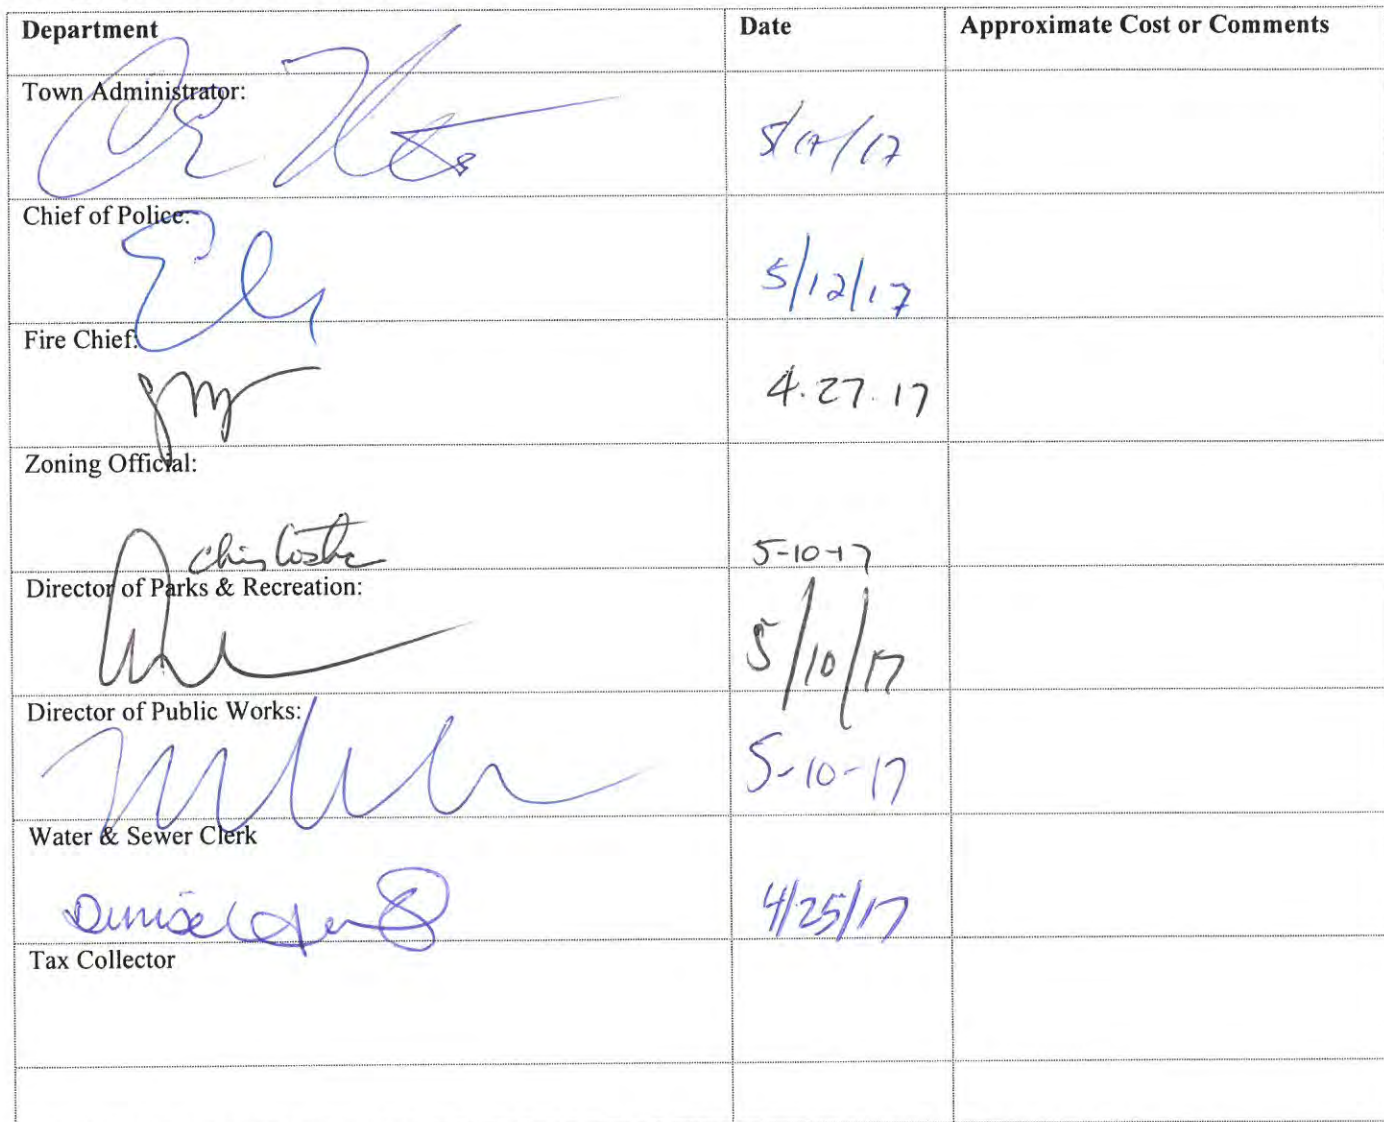 Department Date Approximate Cost or Comments
Town Administrator:
5/17/17
Chief of Police:
5/12/17
Fire Chief:
4.27.17
Zoning Official:
5-10-17
Director of Parks & Recreation:
5/10/17
Director of Public Works:
5-10-17
Water & Sewer Clerk
4/25/17
Tax Collector